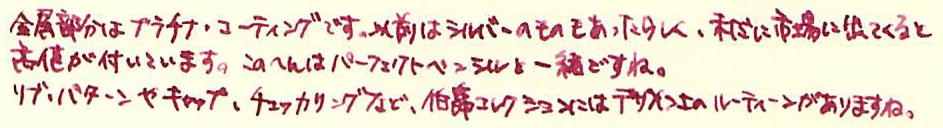 金属部分はプラチナ・コーティングです。以前はシルバーのものもあったらしく、利ざに市場に出てくると
高値が付いています。このへんはパーフェクトペンシルと一緒ですね。
リブ・パターンやキャップ、チェッカリングなど、伯爵コレクションにはデザイン上のルーティーンがありますね。